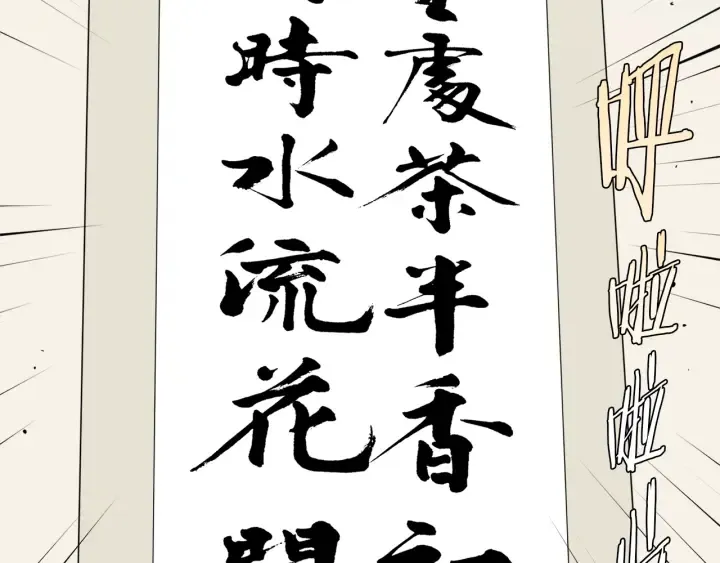 處茶半香初
時水流花開
呼啦啦